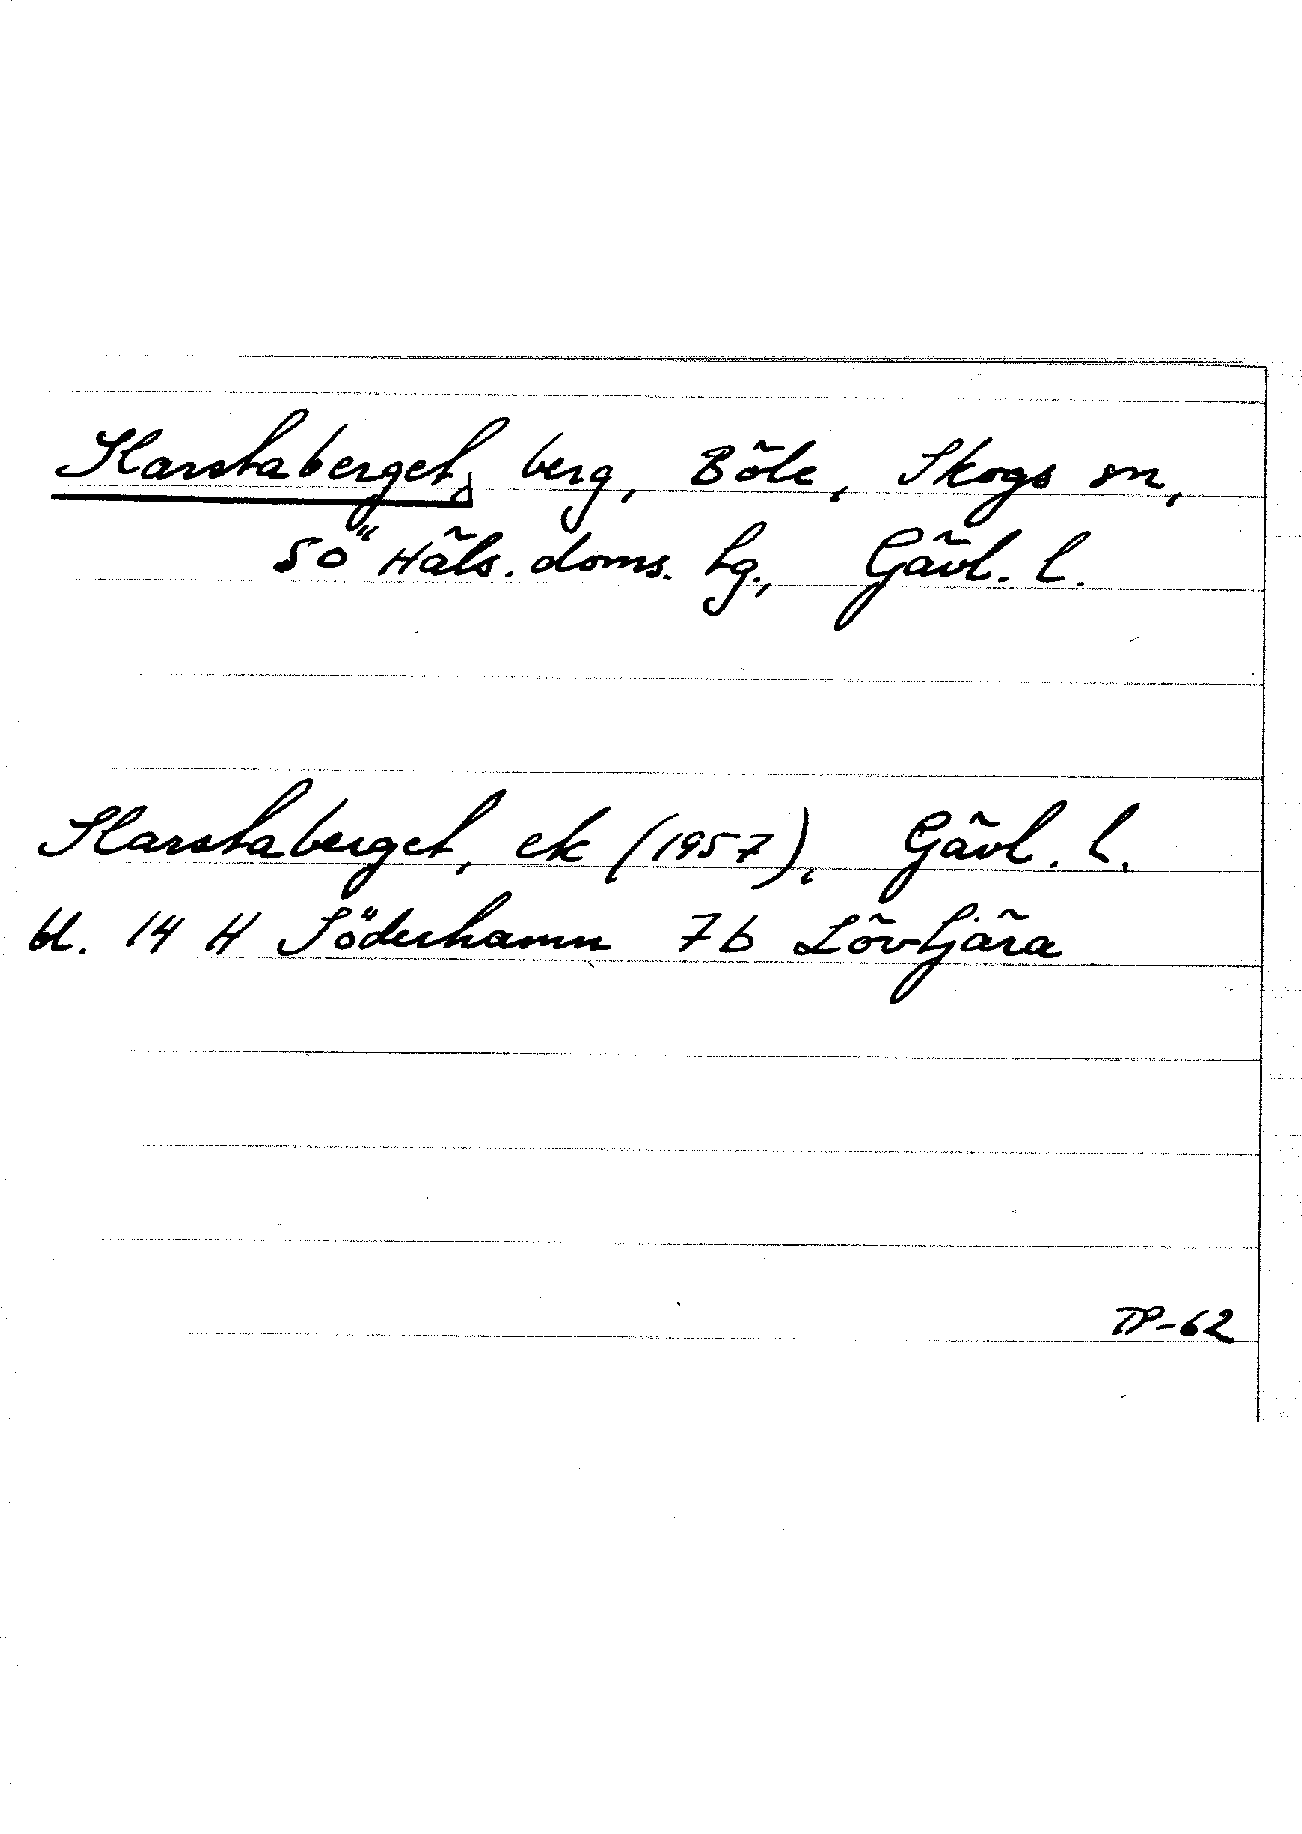 Harstaberget, berg, Böle, Skogs sn,
Sö Häls. doms. tg., Gävl. l.
Harstaberget, ek (1957), Gävl. l.
bl. 14 H Söderhamn 7b Lövtjära
TP-62